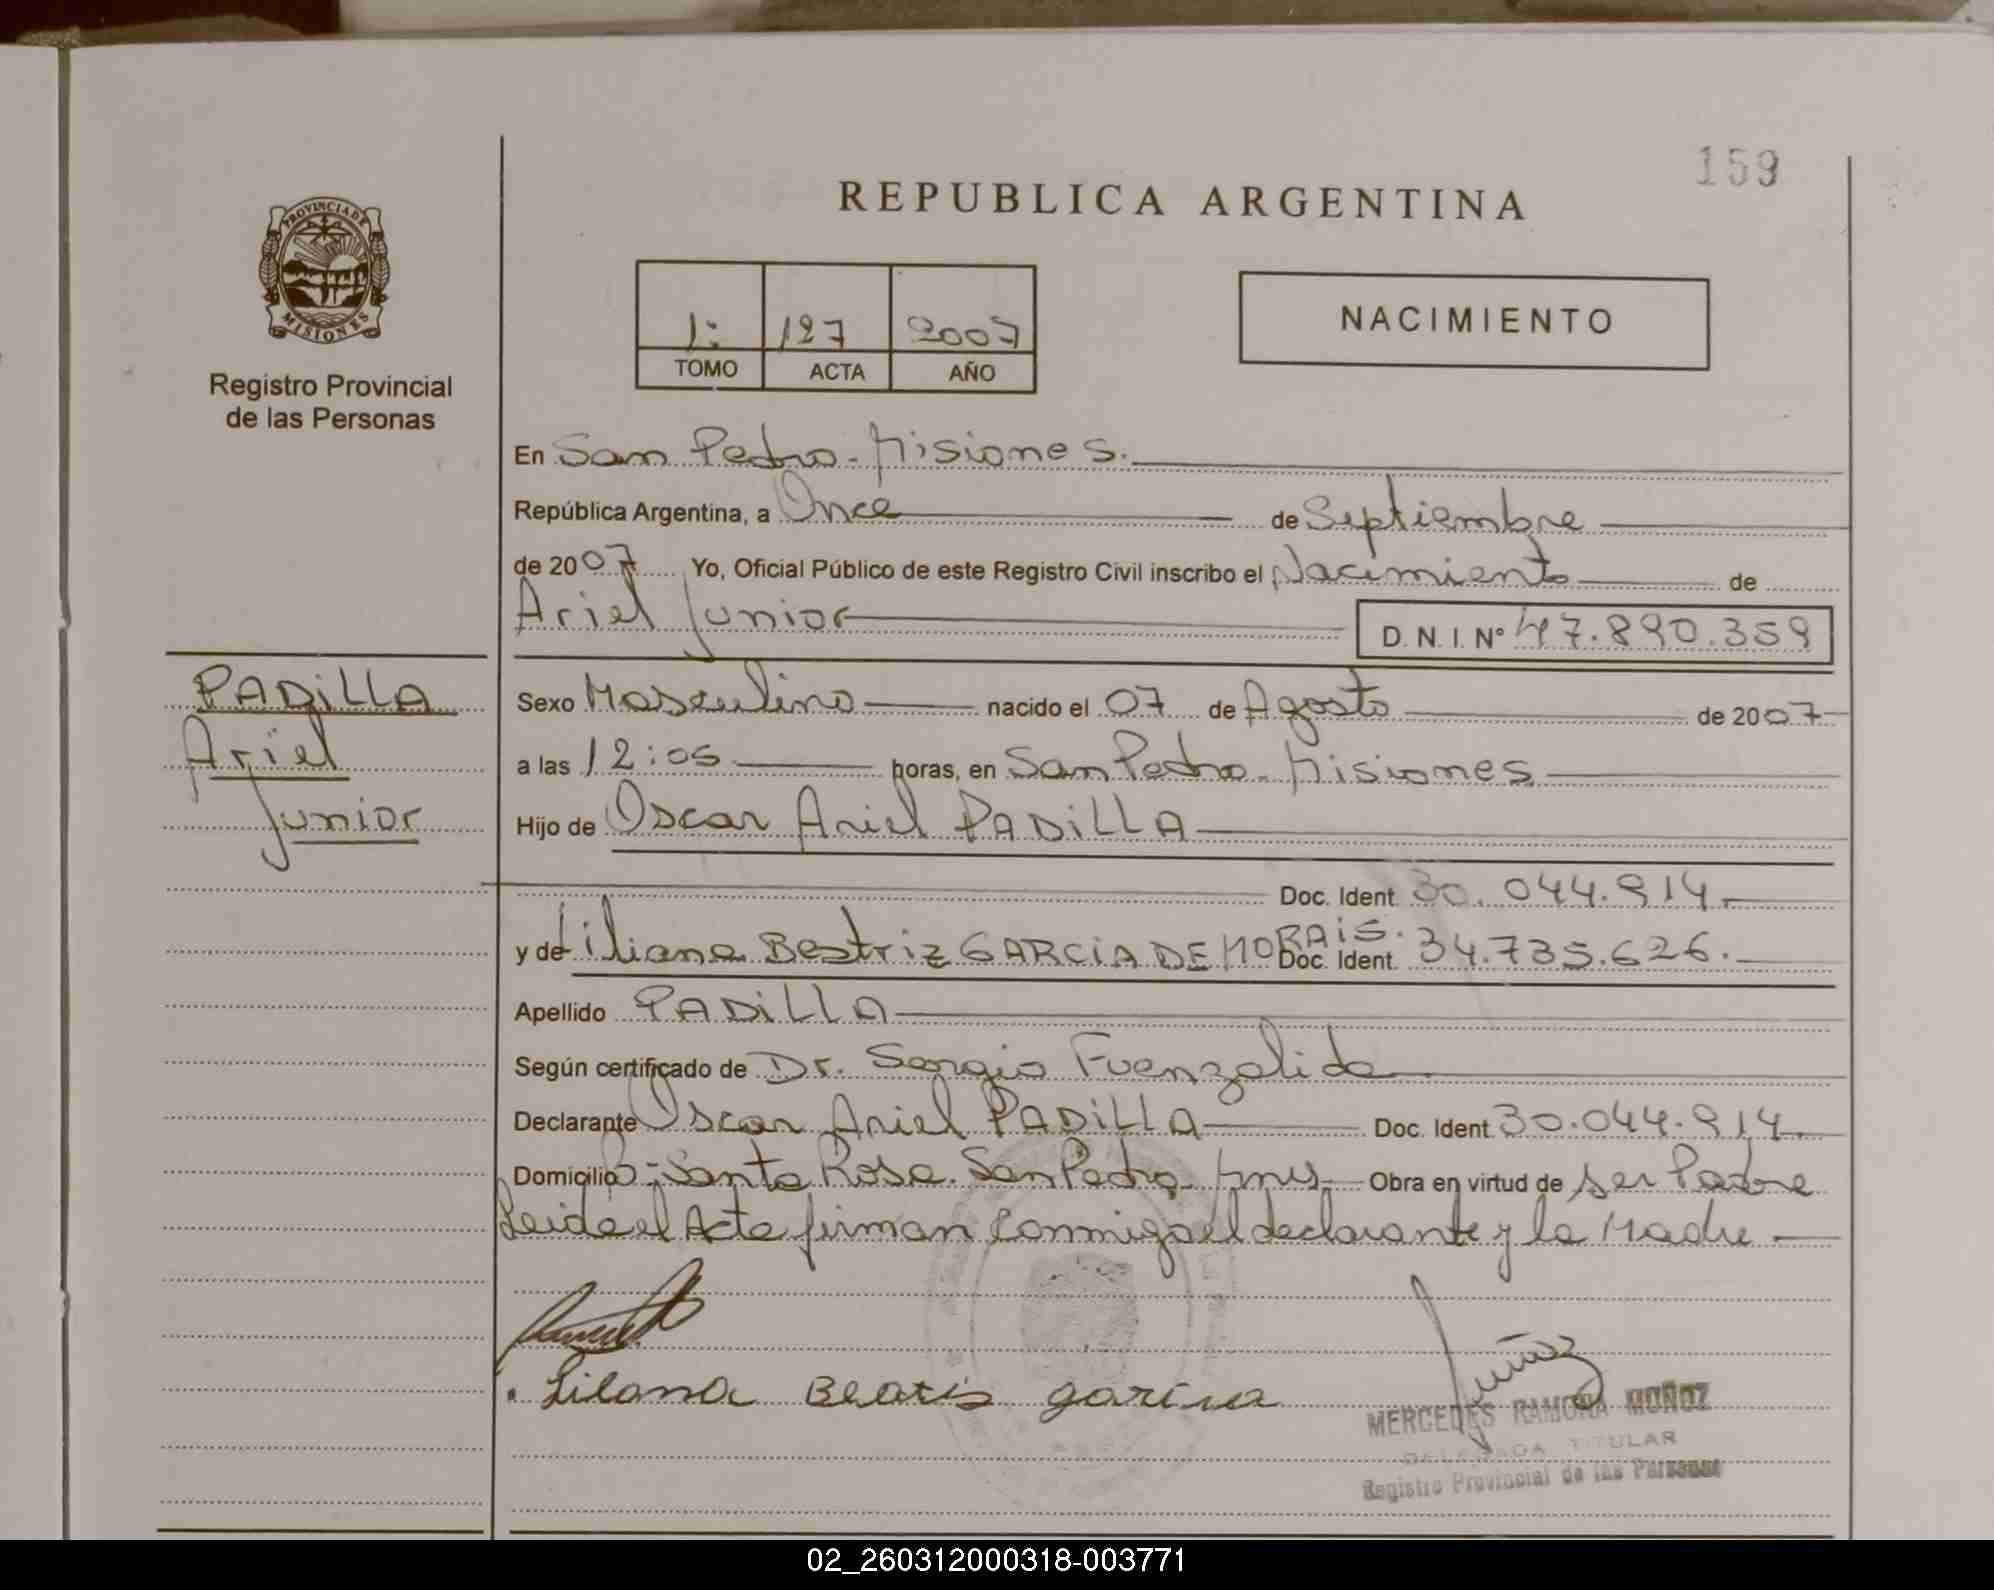 159
REPUBLICA ARGENTINA
PROVINCIA DE
MISIONES
Registro Provincial
de las Personas
1: 127 2007
TOMO ACTA AÑO
NACIMIENTO
En San Pedro - Misiones.
República Argentina, a Once de Septiembre
de 2007 Yo, Oficial Público de este Registro Civil inscribo el Nacimiento de
Ariel Junior D.N.I. Nº 47.890.359
PADiLLA
Ariel
Junior
Sexo Masculino nacido el 07 de Agosto de 2007
a las 12:05 horas, en San Pedro - Misiones
Hijo de Oscar Ariel PADiLLA
Doc. Ident. 30.044.914
y de Liliana Beatriz GARCiA DE MORAiS. Doc. Ident. 34.735.626.
Apellido PADiLLA
Según certificado de Dr. Sergio Fuenzalida
Declarante Oscar Ariel PADiLLA Doc. Ident. 30.044.914
Domicilio Bº Santa Rosa. San Pedro - Mnes Obra en virtud de ser Padre
Leida el Acta firman conmigo el declarante y la Madre
Liliana Beatris garcia
Muñoz
MERCEDES RAMONA MUÑOZ
DELEGADA TITULAR
Registro Provincial de las Personas
02_260312000318-003771